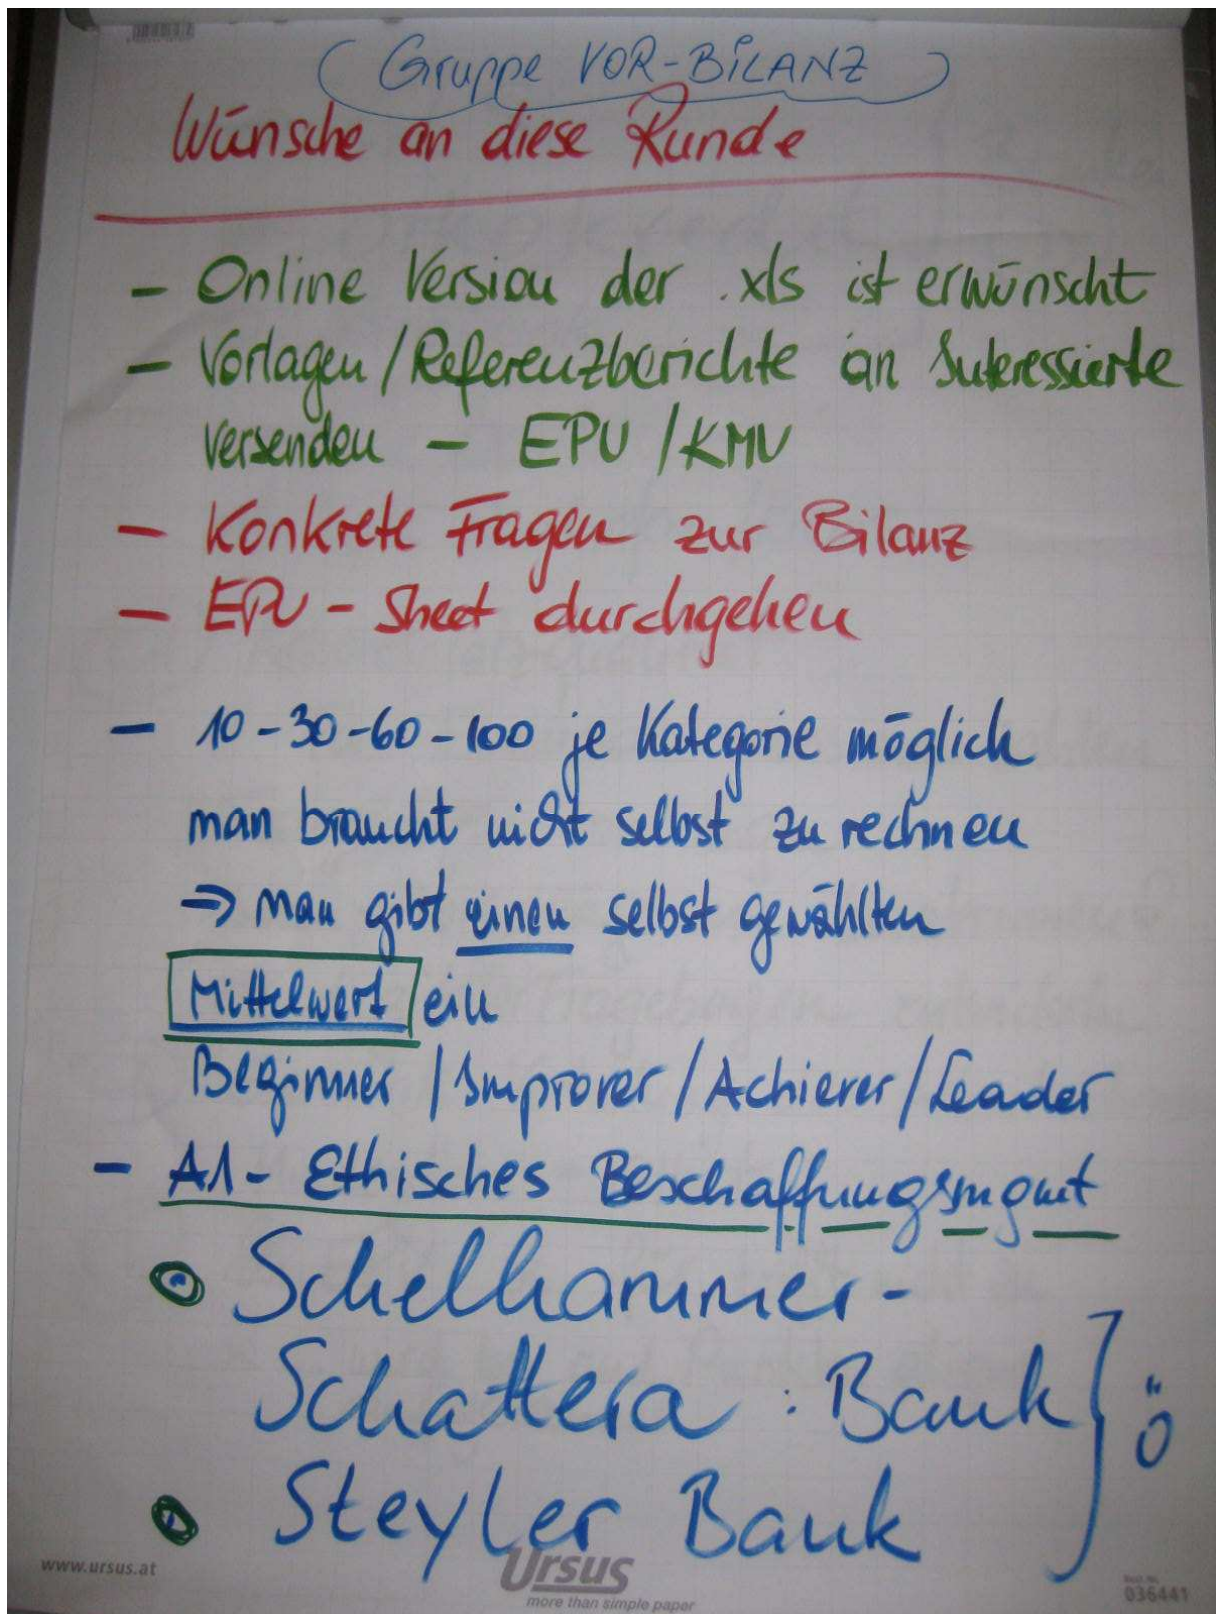 Gruppe VOR-BILANZ
Wünsche an diese Runde
- Online Version der .xls ist erwünscht
- Vorlagen/Referenzberichte an Interessierte
versenden - EPU/KMU
- Konkrete Fragen zur Bilanz
- EPU - Sheet durchgehen
- 10-30-60-100 je Kategorie möglich
man braucht nicht selbst zu rechnen
⇒ man gibt einen selbst gewählten
Mittelwert ein
Beginner/Improver/Achierer/Leader
- A1- Ethisches Beschaffungsmgmt
Schelhammer-
Schattera : Bank
Ö
Steyler Bank
www.ursus.at
Ursus
more than simple paper
036441